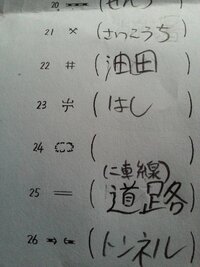 20 (せんろ
21 × (さいこうち)
22 # (油田)
23 (はし)
24 ( )
(二車線)
25 = (道路
26 (トンネル)